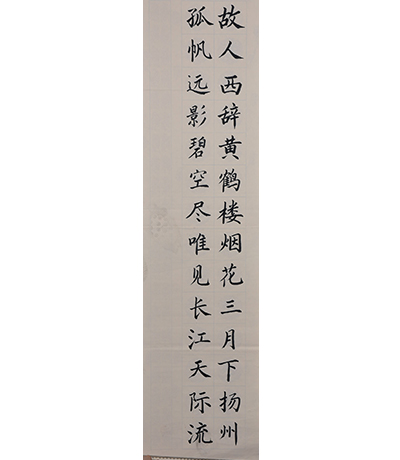 故人西辞黄鹤楼烟花三月下扬州
孤帆远影碧空尽唯见长江天际流